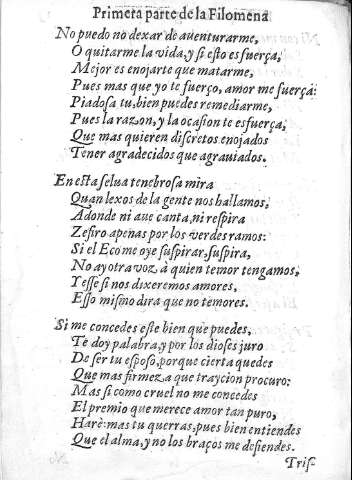 Primera parte de la Filomena
No puedo no dexar de auenturarme,
O quitarme la vida, y si esto es fuerça,
Mejor es enojarte que matarme,
Pues mas que yo te fuerço, amor me fuerça:
Piadosa tu, bien puedes remediarme,
Pues la razon, y la ocasion te esfuerça,
Que mas quieren discretos enojados
Tener agradecidos que agrauiados.
En esta selua tenebrosa mira
Quan lexos de la gente nos hallamos,
Adonde ni aue canta, ni respira
Zefiro apenas por los verdes ramos:
Si el Eco me oye suspirar, suspira,
No ay otra voz à quien temor tengamos,
Y esse si nos dixeremos amores,
Esso mismo dira que no temores.
Si me concedes este bien que puedes,
Te doy palabra, y por los dioses juro
De ser tu esposo, porque cierta quedes
Que mas firmeza que traycion procuro:
Mas si como cruel no me concedes
El premio que merece amor tan puro,
Harè mas tu querras, pues bien entiendes
Que el alma, y no los braços me defiendes.
Tris-